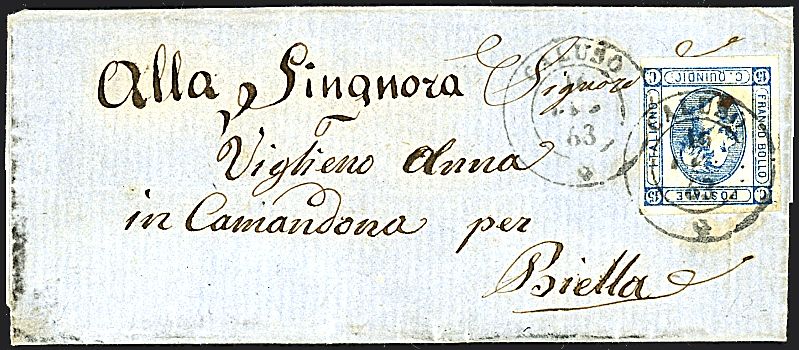 Alla Singnora Signora
Viglieno Anna
in Camandona per
Biella
CALUSO
63
C. QUINDICI
FRANCO BOLLO
POSTALE
ITALIANO
15 C
15
C
15
CALUSO